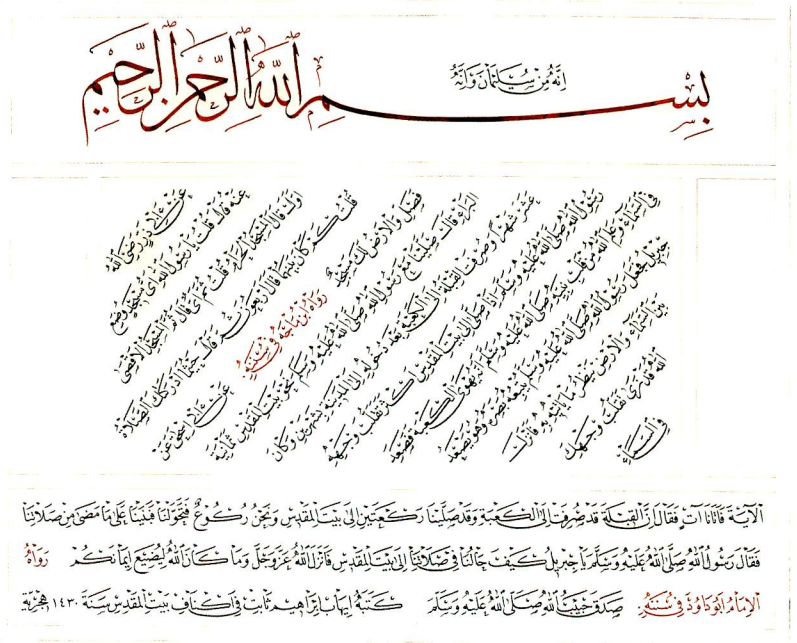 انه من سليمان وانه
بسم الله الرحمن الرحيم
عن ابي ذر رضي الله
عنه قال قلت يا رسول الله اي مسجد وضع
اول قال المسجد الحرام قلت ثم اي قال ثم المسجد الاقصى
قلت كم كان بينهما قال اربعون ثم قال حيثما ادركتك الصلاة
فصل والارض لك مسجد رواه ابن ماجه في سننه عن ابي اسحق عن
البراء قال صلينا مع رسول الله صلى الله عليه وسلم نحو بيت المقدس ثمانية
عشر شهرا وصرفت القبلة الى الكعبة بعد دخوله الى المدينة بشهرين وكان
رسول الله صلى الله عليه وسلم اذا صلى الى بيت المقدس اكثر تقلب وجهه
في السماء وعلم الله من قلب نبيه صلى الله عليه وسلم انه يهوى الكعبة فصعد
جبريل فجعل رسول الله صلى الله عليه وسلم يتبعه بصره وهو يصعد
بين السماء والارض ينظر ما ياتيه به فانزل
الله قد نرى تقلب وجهك
في السماء
الاية فاتانا ات فقال ان القبلة قد صرفت الى الكعبة وقد صلينا ركعتين الى بيت المقدس ونحن ركوع فتحولنا فبنينا على ما مضى من صلاتنا
فقال رسول الله صلى الله عليه وسلم يا جبريل كيف حالنا في صلاتنا الى بيت المقدس فانزل الله عز وجل وما كان الله ليضيع ايمانكم رواه
الامام ابو داود في سننه. صدق حبيب الله صلى الله عليه وسلم كتبه ايهاب ابراهيم ثابت في اكناف بيت المقدس سنة ١٤٣٠ هجرية